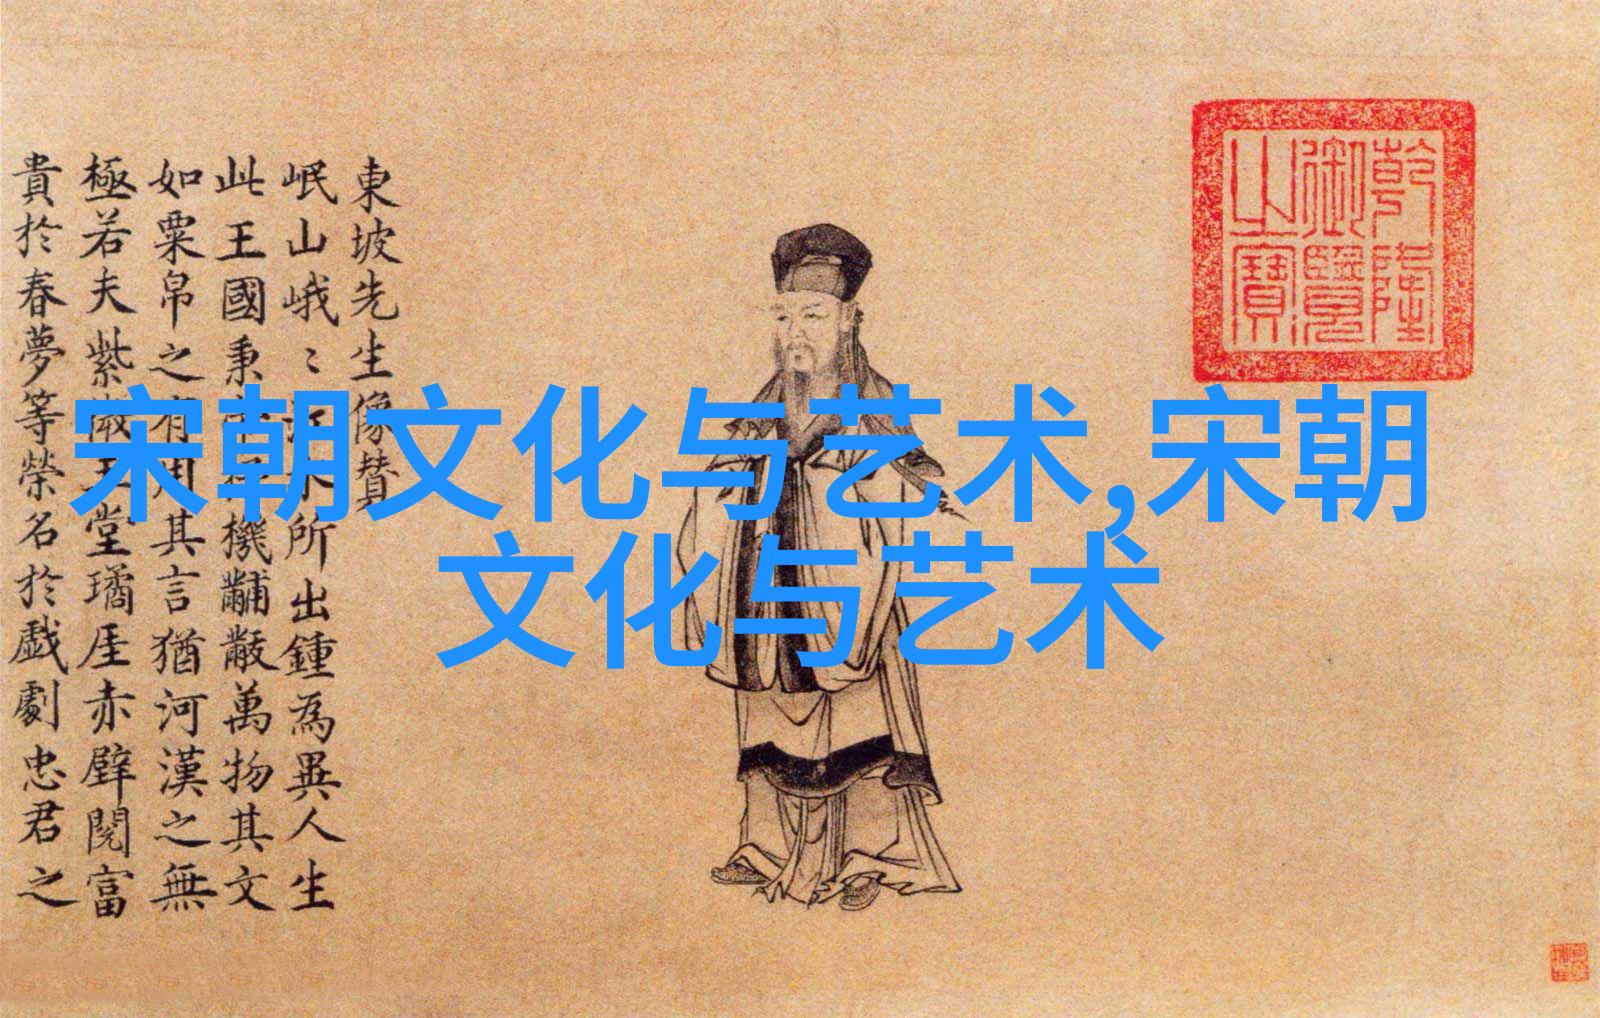 東坡先生像贊
岷山峨〻江水所出鍾為異人生
此王國秉帝杼機黼黻萬物其文
如粟帛之有用其言猶河漢之無
極若夫紫微玉堂璚厓赤壁閱富
貴於春夢等榮名於戲劇忠君之
乾隆
御覽
之寶
宋朝文化与艺术,宋朝
文化与艺术